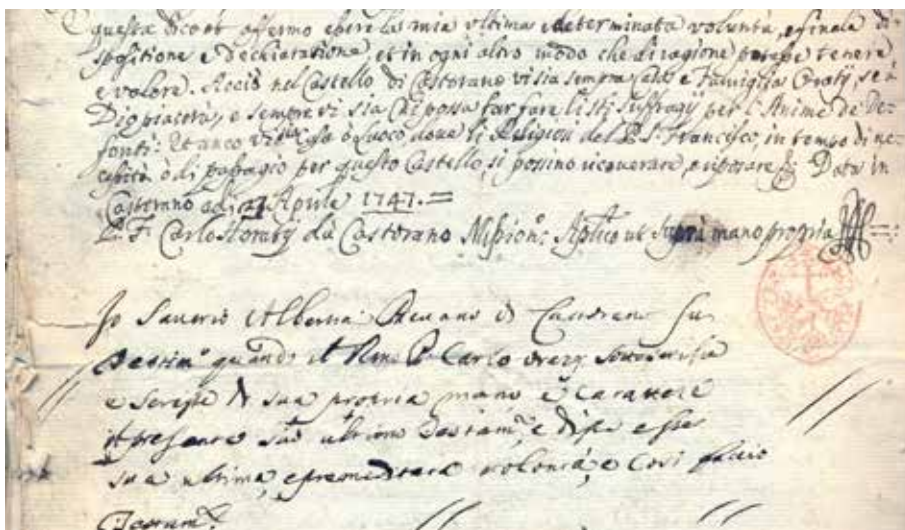 questa dico et affermo essere la mia ultima e determinata voluntà, e finale di-
spositione e dechiaratione, et in ogni altro modo che di ragione potesse tenere,
e valore. Acciò nel Castello di Castorano vi sia sempre e Famiglia Oratij, se à
Dio piacerà, e sempre vi sia chi possa far fare li sti Suffragij per l'Anime de De-
fonti: Et anco vi sia loco, dove li Religiosi del P. S. Francesco, in tempo di ne-
cessità ò di passagio per questo Castello, si possino ricoverare, e riposare. Data in
Castorano adi Aprile 1747. =
P. F. Carlo Horatij da Castorano Mission.º Aplico ut supra mano propria
Io Saverio Pievano di Castorano fui
Testim.º quando il Rmo P. Carlo Orazj sottoscrisse
e scrisse di sua propria mano e carattere
il presente suo ultimo Testam.º e disse esser
sua ultima, e premeditata volontà, e così faccio